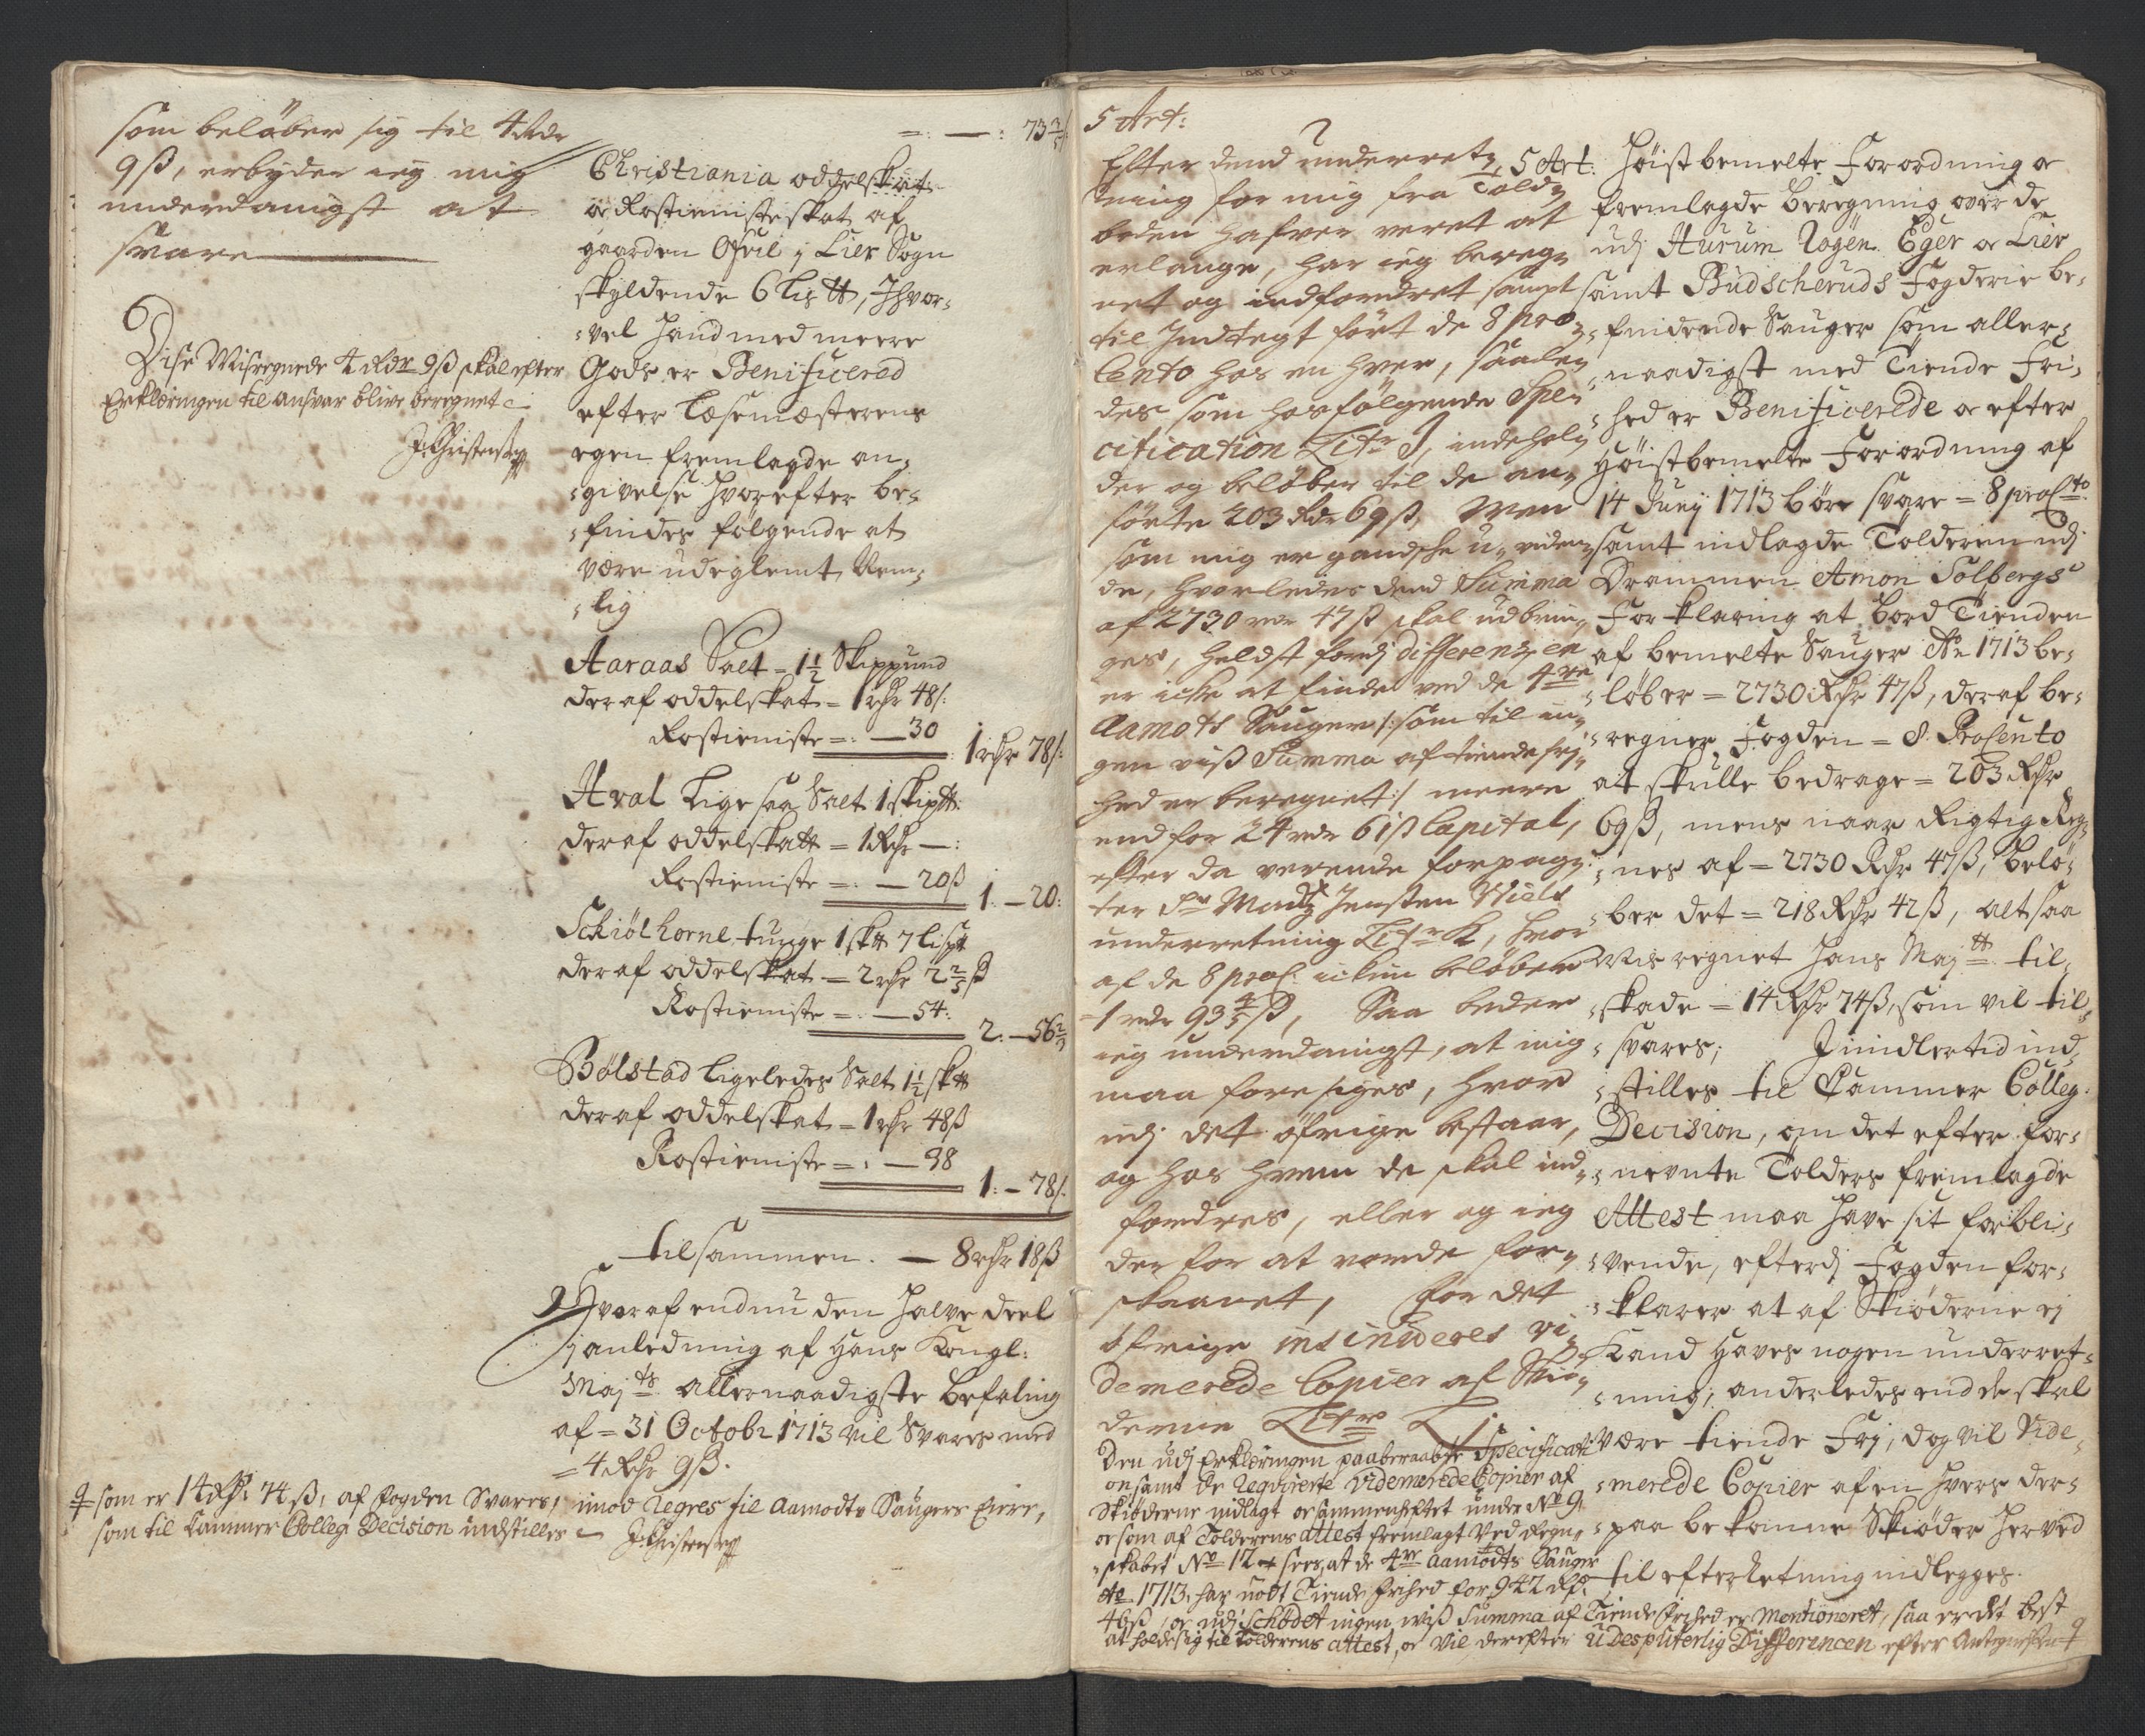 som beløber sig til 4 Rdr
9 ß, erbyder ieg mig
underdanigst at
svare
Disse Misregnede 4 Rdr 9ß skal efter
Erklæringen til ansvar blive beregnet
J: Christensen
=: — : 73 3/5
Christiania oddelskat
oc Rostieniste skat af
gaarden i Lier Sogn
skyldende 6 Lis ℔, Ihvor-
-vel hand med meere
Gods er Benificered
efter Læsemesterens
egen fremlagde an-
-givelse hvorefter be-
-findes følgende at
være udeglemt Nem-
-lig
Aaraas Salt = 1½ Skippund
deraf oddelskat = 1 rdr 48 ß:
Rostieniste =: — 30
1 rdr 78 ß:
Hval Lige saa Salt 1 skip℔:
deraf oddelskatt = 1 Rdr —:
Rostieniste =: — 20ß
1: — 20:
Schiølhorne tunge 1 sk℔ 7 lisp℔
deraf oddelskat = 2 rdr 2 2/5 ß
Rostieniste =: — 54:
2: — 56 2/5
Bølstad ligeledes Salt 1½ sk℔
deraf oddelskat = 1 rdr 48ß
Rostieniste =: — 38
1: — 78 ß:
tilsammen. — 8 rdr 18ß
Hvoraf endnu den halve deel
i anledning af Hans Kongl:
Maj ts allernaadigste befaling
af = 31 Octobr 1713 vil Svares med
= 4 Rdr 9ß.
som er 14 Rdr: 74 ß, af fogden Svares, imod Regres til Aamodts Saugers Eiere,
som til Cammer Colleg Decision indstilles
J: Christensen
5 Art:
Efter dend underret-
ning for mig fra Told-
boden hafver veret at
erlange, har ieg bereg-
net og indfordret sampt
til Indtegt ført de 8 pro
Cento hos en hver, saale-
des som hosfølgende Spe-
cification Litr J, indehol-
der og beløber til de an-
førte 203 Rdr 69ß, Men
som mig er gandske u-viden-
de, hvorledes dend Summa
af 2730 rdr 47 ß skal udbrin-
ges, heldst fordj differenzen
er icke at finde ved de 4re
Aamots Sauger /: som til in-
gen viss Summa af tiende frj-
hed er beregnet :/ meere
end for 24 rdr 61ß Capital,
efter da verende forpag-
ter Sr Madtz Jensten Niels
underretning Litr K, hvor
af de 8 proC: ickun beløber
= 1 rdr 93 4/5 ß, Saa beder
ieg underdanigst, at mig
maa foresiges, hvor
udj det øfrige bestaar,
og hos hvem de skal ind-
fordres, eller og ieg
der for at vorde for-
skaanet, For det
øfrige insinueres vi-
demerede Copier af Skiø-
derne Litr L
Den udj Erklæringen paaberaabte Specificati-
on samt de Reqvirerte Videmerede Copier af
Skiøderne indlagt oc sammenheftet under No 9.
oc som af Tolderens attest fremlagt ved Regn-
-skabet No 12 sees, at de 4re Aamodts Sauger
Ao 1713, har nødt Tiende frihed for 942 Rdr:
46ß, oc udj Schødet ingen wiss Summa af Tiende frihed er Mentioneret, saa er det best
at holde sig til tolderens attest, oc Vil derefter udesputerlig Differencen efter Antegnelsen
5 Art: Høistbemelte Forordning oc
fremlagde beregning over de
udj Hurum Røgen. Eger oc Lier
samt Budscheruds Fogderie be-
-findende Sauger som aller-
-naadigst med Tiende Fri-
-hed er Benificerede oc efter
Høistbemelte Forordning af
14 Junij 1713 børe svare = 8 proCto.
samt indlagde Tolderen udj
Drammen Amon Solbergs
Forklaring at bord Tienden
af bemelte Sauger Ao 1713 be-
-løber = 2730 Rdr 47ß, deraf be-
-regner Fogden = 8 ProCento
at skulle bedrage = 203 Rdr
69ß, mens naar Rigtig Reg-
-nes af = 2730 Rdr 47ß, belø-
-ber det = 218 Rdr 42ß, altsaa
Misregnet hans Maj tt: til
skade = 14 Rdr 74ß, som vil til-
-svares; Jmidlertid ind-
-stilles til Cammer Colleg.
Decision, om det efter for-
-nevnte Tolders fremlagde
Attest maa have sit forbli-
-vende, efterdj Fogden for-
-klarer at af Skiøderne ej
Kand haves nogen underret-
-ning, anderledes end de skal
være tiende Frj, dog vil Vide-
-merede Copier af en hvers der-
-paa bekomne Skiøder herved
til efterretning indlegges.